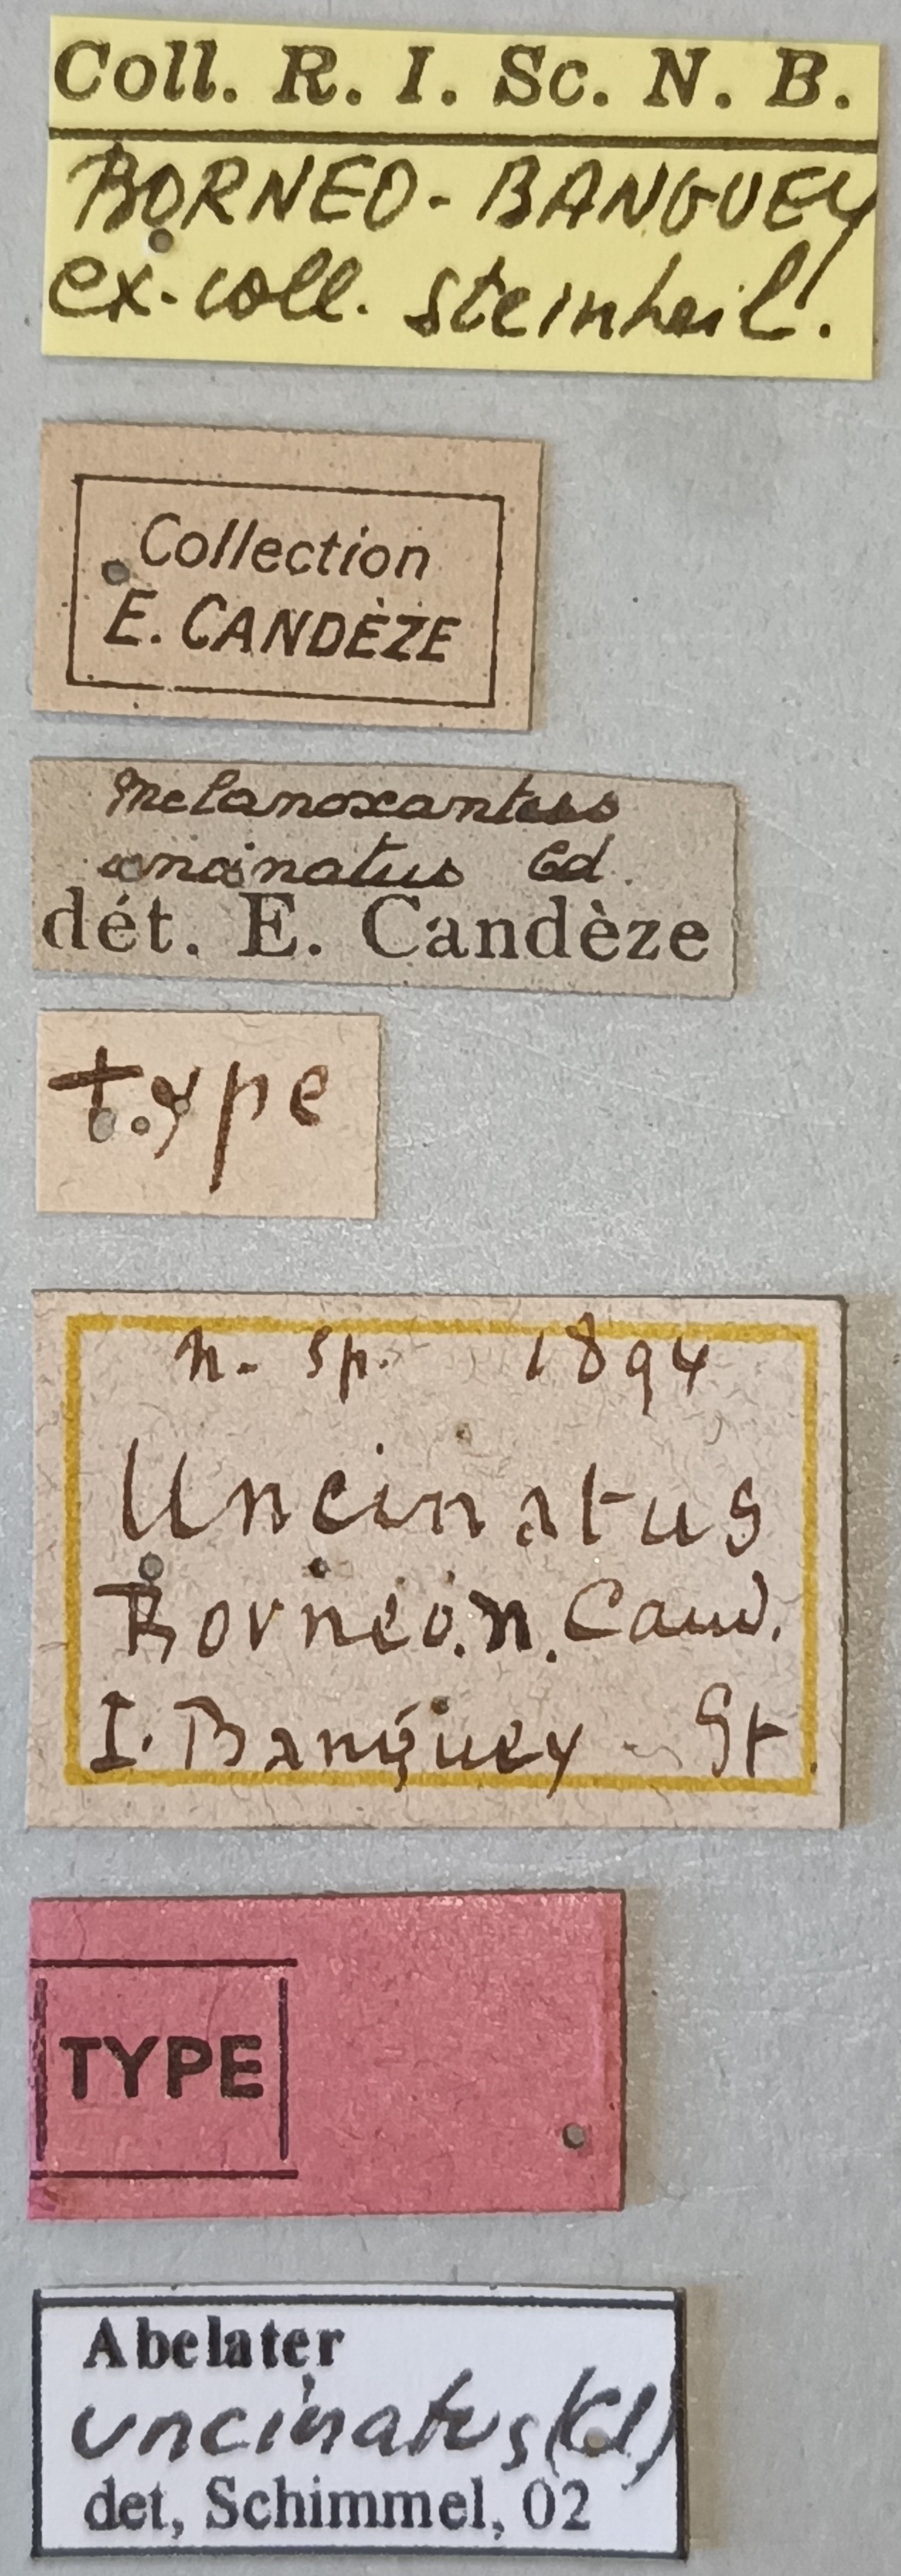 Coll. R. I. Sc. N. B.
BORNEO - BANGUEY
ex-coll. Steinheil.
Collection
E. CANDÈZE
Melanoxantus
uncinatus Cd.
dét. E. Candèze
type
n. sp. 1894
Uncinatus
Borneo. n. Cand.
I. Banguey - St.
TYPE
Abelater
uncinatus (Cd)
det, Schimmel, 02